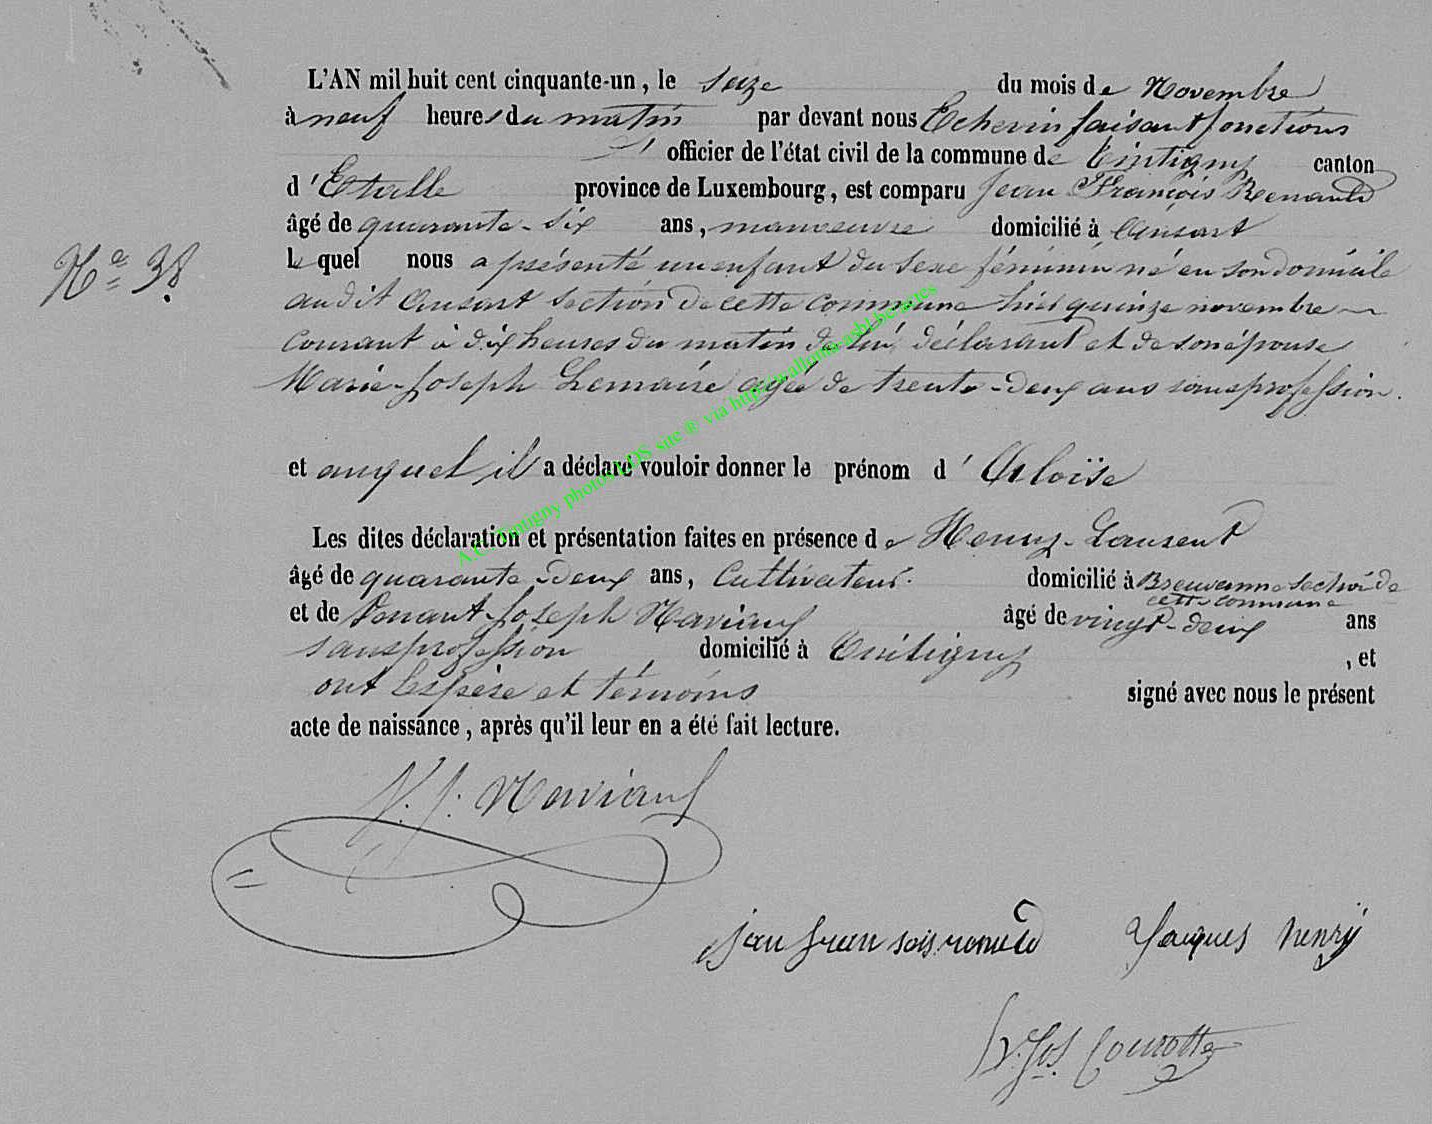 L'AN mil huit cent cinquante-un, le seize du mois de Novembre
à neuf heures du matin par devant nous Echevin faisant fonctions
d' officier de l'état civil de la commune de Tintigny canton
d'Etalle province de Luxembourg, est comparu Jean François Renauld
âgé de quarante-six ans, manoeuvre domicilié à Ansart
Le quel nous a présenté un enfant du sexe féminin né en son domicile
N° 38.
au dit Ansart section de cette commune hier quinze novembre
courant à dix heures du matin de lui déclarant et de son épouse
Marie-Joseph Lemaire agée de trente-deux ans sans profession.
et auquel il a déclaré vouloir donner le prénom d' Aloïse
A.C. Tintigny photos LDS site ® via http://wallonia-asbl.be/actes
Les dites déclaration et présentation faites en présence de Henry-Laurent
âgé de quarante-deux ans, Cultivateur domicilié à Breuvanne section de
cette commune
et de Joseph Naviaux âgé de vingt-deux ans
sans profession domicilié à Tintigny, et
ont les père et témoins signé avec nous le présent
acte de naissance, après qu'il leur en a été fait lecture.
J. Naviaux
jean fran sois renauld Jacques henry
Jos. Courotte